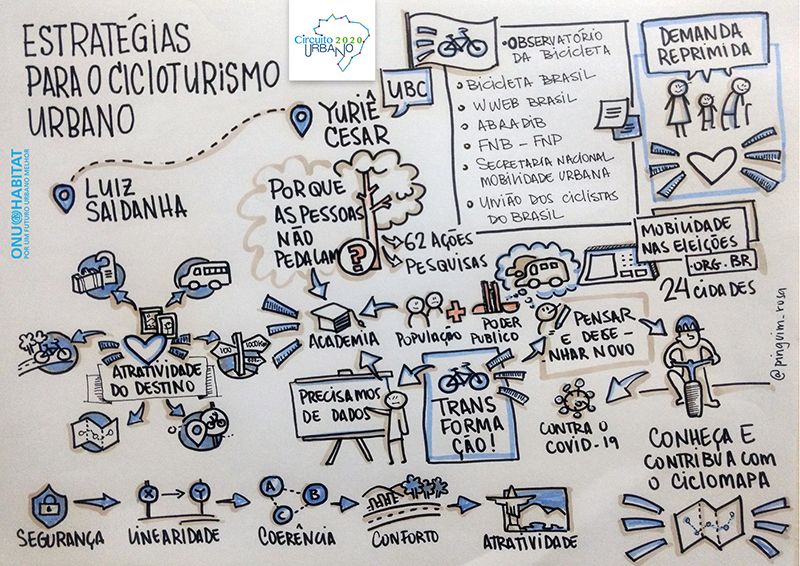 ESTRATÉGIAS
PARA O CICLOTURISMO
URBANO
Circuito 2020
URBANO
ONU@HABITAT
POR UM FUTURO URBANO MELHOR
LUIZ
SALDANHA
YURIÊ
CESAR
UBC
• OBSERVATÓRIO
DA BICICLETA
• BICICLETA BRASIL
• WWEB BRASIL
• ABRADIB
• FNB - FNP
• SECRETARIA NACIONAL
MOBILIDADE URBANA
• UNIÃO DOS CICLISTAS
DO BRASIL
DEMANDA
REPRIMIDA
POR QUE
AS PESSOAS
NÃO
PEDALAM
?
62 AÇÕES
PESQUISAS
MOBILIDADE
NAS ELEIÇÕES
.ORG.BR
24 CIDADES
@pinguim_rosa
ATRATIVIDADE
DO DESTINO
100
1000KM
ACADEMIA
POPULAÇÃO
+
PODER
PUBLICO
PENSAR
E DESE-
NHAR NOVO
PRECISAMOS
DE DADOS
TRANS
FORMA
ÇÃO!
CONTRA O
COVID-19
CONHEÇA E
CONTRIBUA COM
O CICLOMAPA
X
Y
A
B
C
SEGURANÇA
LINEARIDADE
COERÊNCIA
CONFORTO
ATRATIVIDADE